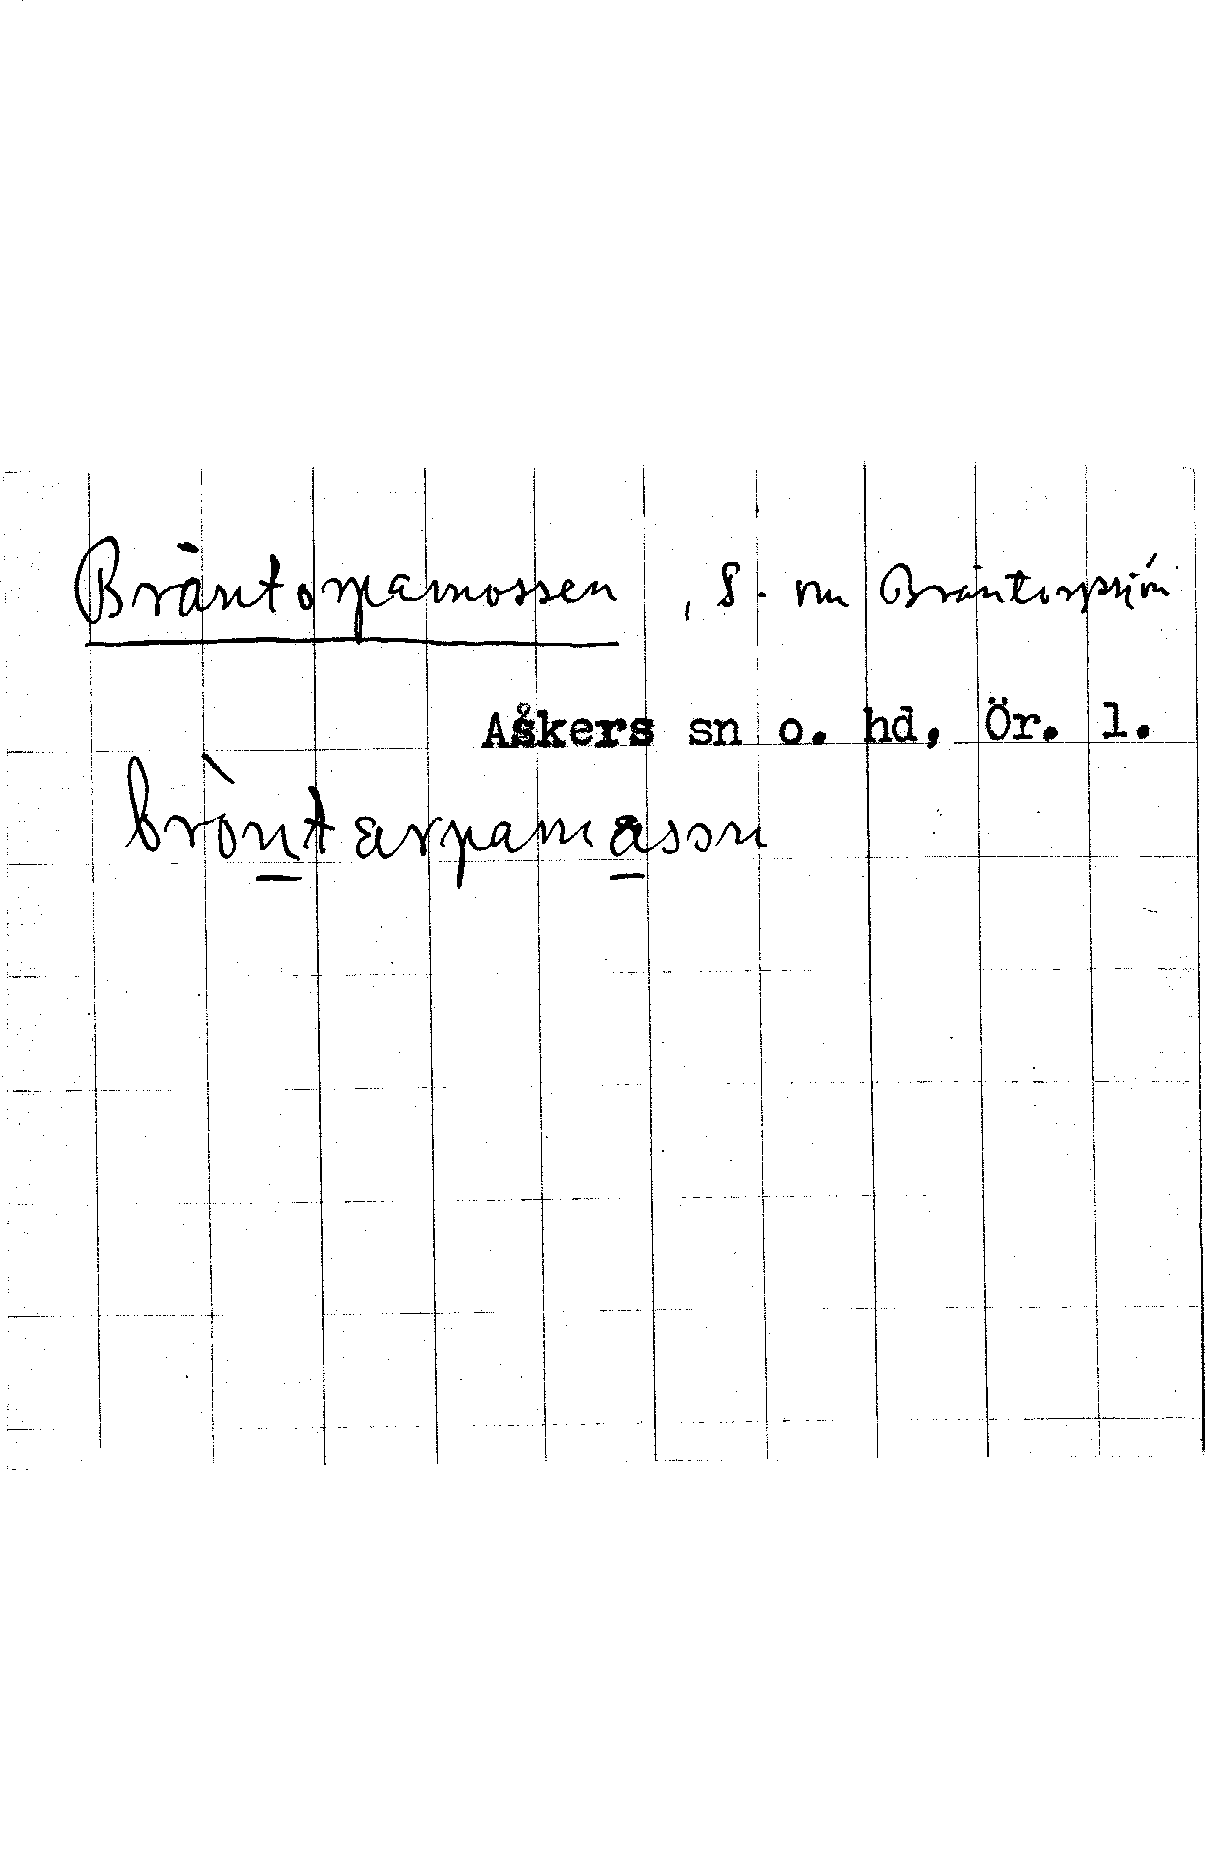 Bräntorpamossen, S. om Bräntorpsjön
Askers sn o. hd, Ör. l.
bròntarpamassn